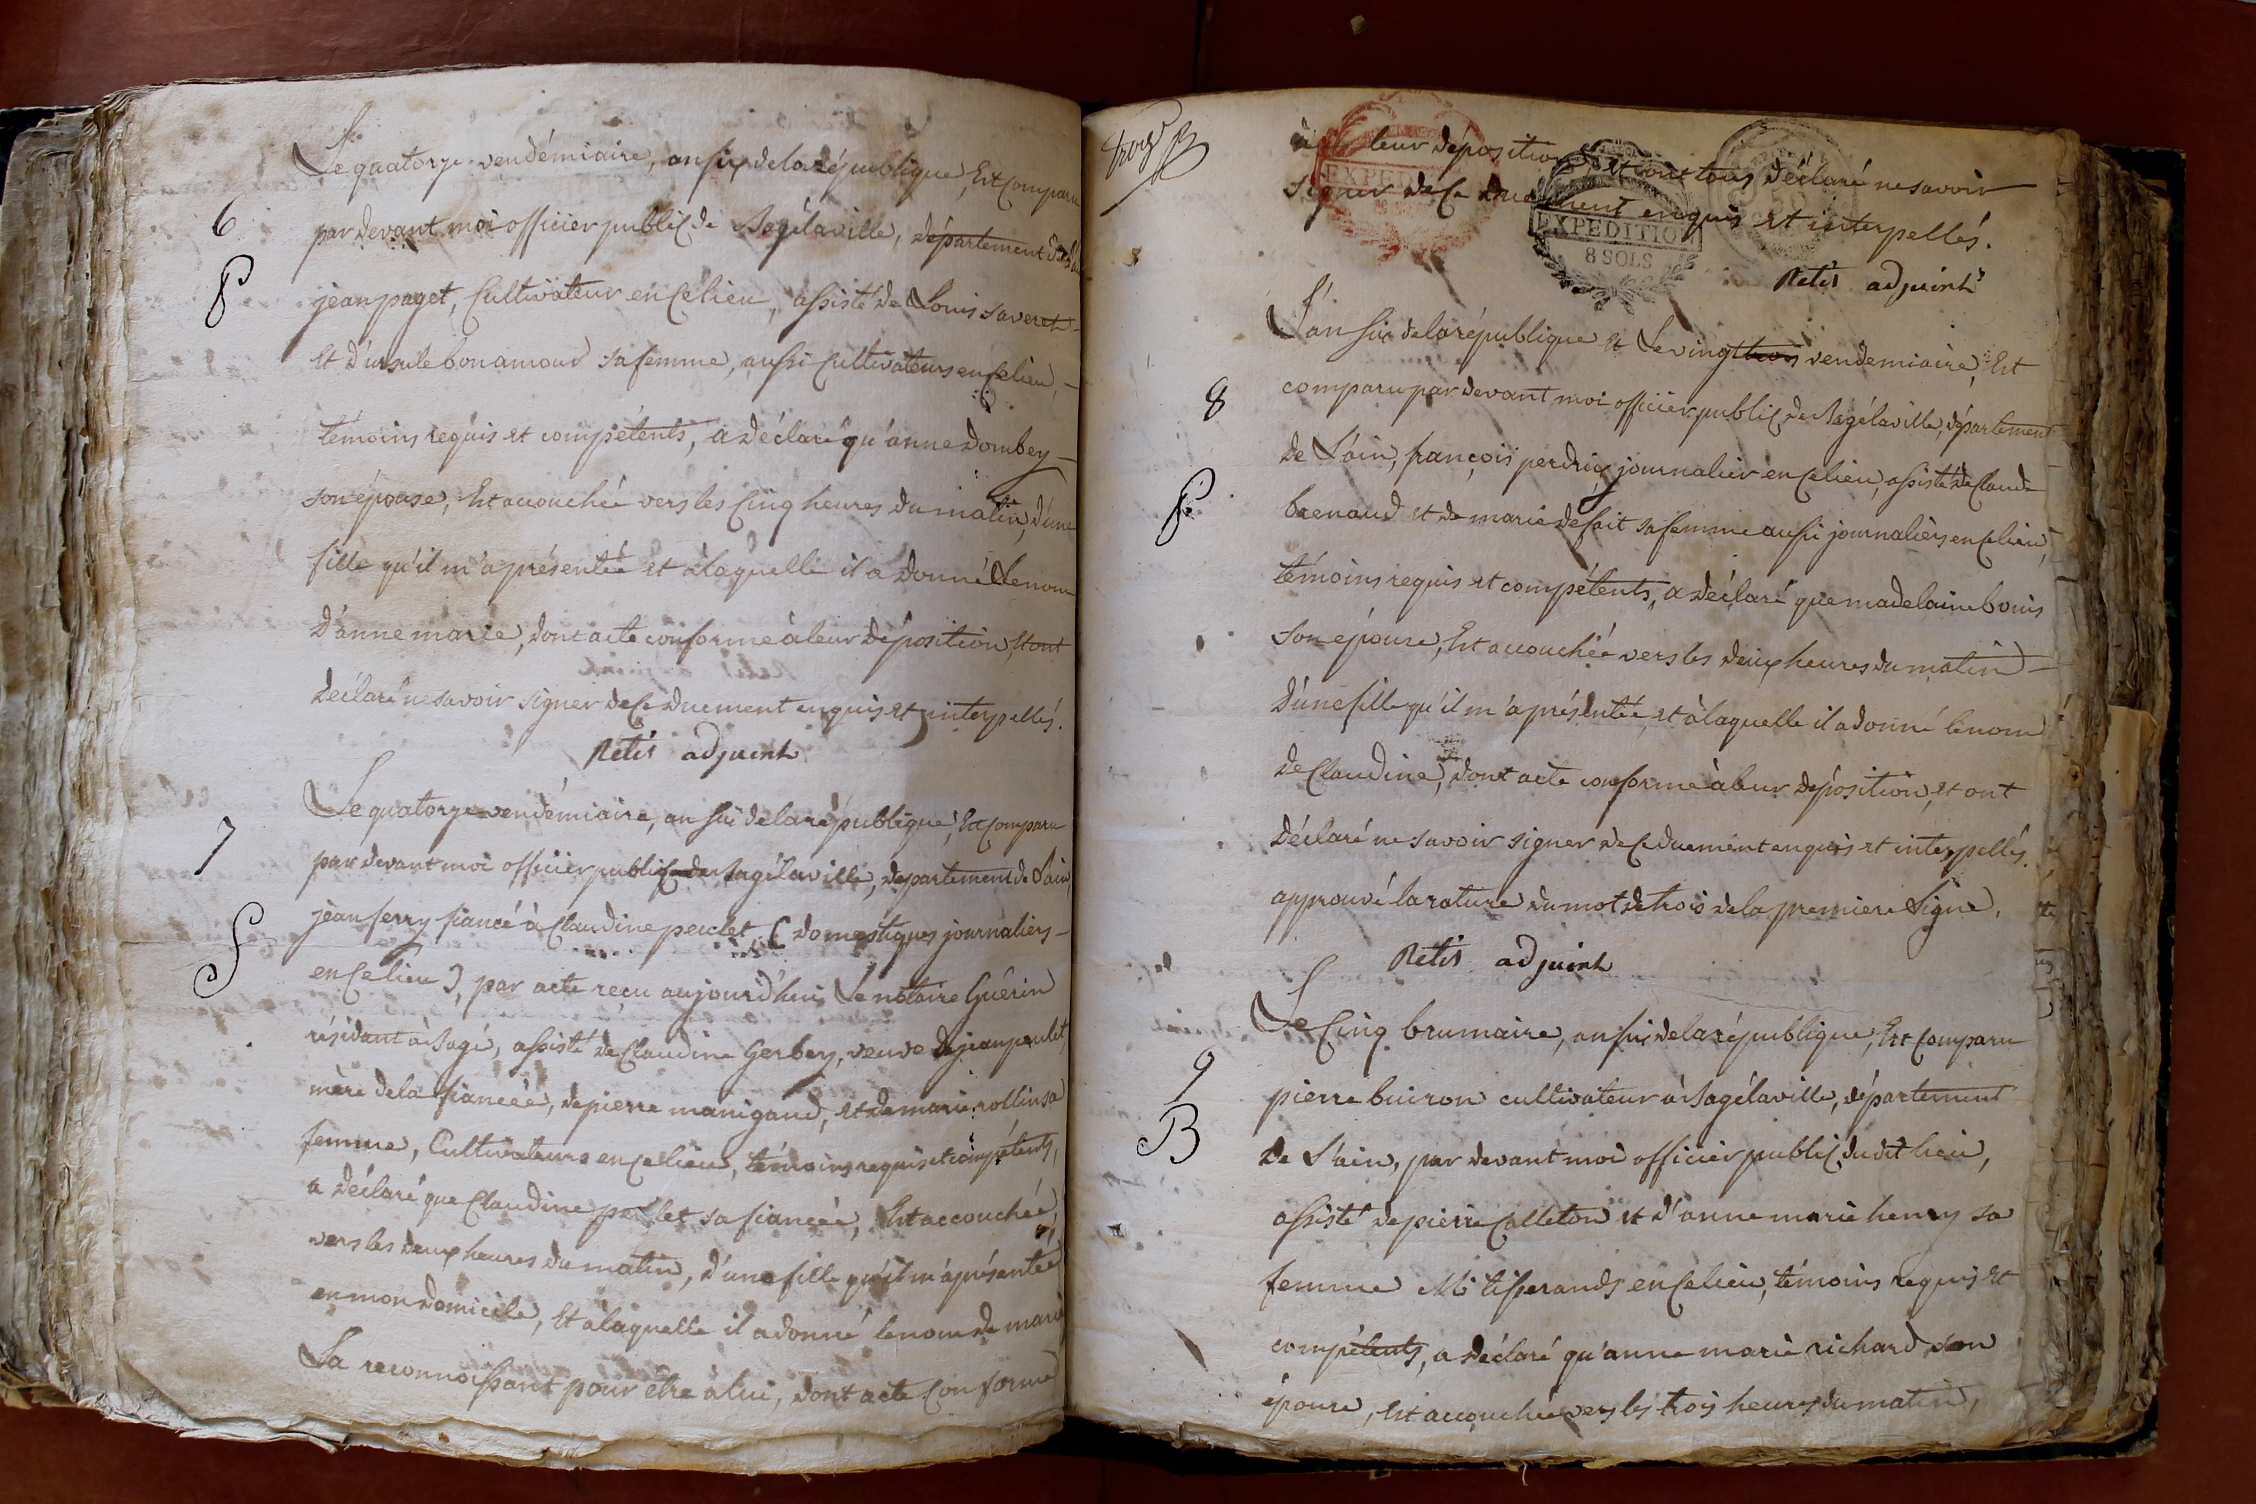 Le quatorze vendémiaire, an six de la république, Est comparu
6
par devant moi officier public de Sagélaville, département de l'ain
P
jean paget, Cultivateur en Ce lieu, assisté de Louis Saveret
Et d'ursule bonamoud sa femme, aussi Cultivateurs en Ce lieu,
témoins requis et compétents, a déclaré qu'anne Dombey
son épouse, Est accouchée vers les Cinq heures du matin, d'une
fille qu'il m'a présentée et à laquelle il a donné Le nom
D'anne marie, dont acte conforme à leur déposition, Et ont
déclaré ne savoir signer de Ce duement enquis et interpellés.
Retis adjoint
Le quatorze vendémiaire, an six de la république, Est comparu
7
par devant moi officier public de Sagélaville, département de L'ain
jean ferry fiancé à Claudine peulet ( domestiques journaliers
P
en Ce lieu ), par acte reçu aujourd'hui Le notaire Guérin
résidant à Sagé, assisté de Claudine Gerbey, veuve de jean peulet,
mère de la fiancée, de pierre manigand, et de marie rollin sa
femme, Cultivateurs en Ce lieu, témoins requis et compétents,
a déclaré que Claudine peulet sa fiancée, Est accouchée,
vers les deux heures du matin, d'une fille qu'il m'a présentée
en mon domicile, Et à laquelle il a donné le nom de marie
La reconnoissant pour être à lui, dont acte Conforme
trois
à leur déposition, et ont tous déclaré ne savoir
signer de Ce duement enquis et interpellés.
EXPEDITION
8 SOLS
Retis adjoint
L'an six de la république et Le vingt trois vendemiaire, Est
8
comparu par devant moi officier public de Sagélaville, département
de L'ain, françois perdrix journalier en Ce lieu, assisté de Claude
P
brenaud et de marie defait sa femme aussi journaliers en Ce lieu,
témoins requis et compétents, a déclaré que madelaine bouis
son épouse, Est accouchée vers les deux heures du matin
D'une fille qu'il m'a présentée, et à laquelle il a donné le nom
de Claudine, dont acte conforme à leur déposition, et ont
Déclaré ne savoir signer de Ce duement enquis et interpellés.
approuvé la rature du mot de trois de la premiere Ligne.
Retis adjoint
Le Cinq brumaire, an six de la république, Est Comparu
9
pierre buiron cultivateur à Sagélaville, département
B
De L'ain, par devant moi officier public dudit lieu,
assisté de pierre Calleton et d'anne marie henry sa
femme Mds tisserands en Ce lieu, témoins requis et
compétents, a déclaré qu'anne marie richard son
épouse, Est accouchée vers les trois heures du matin,